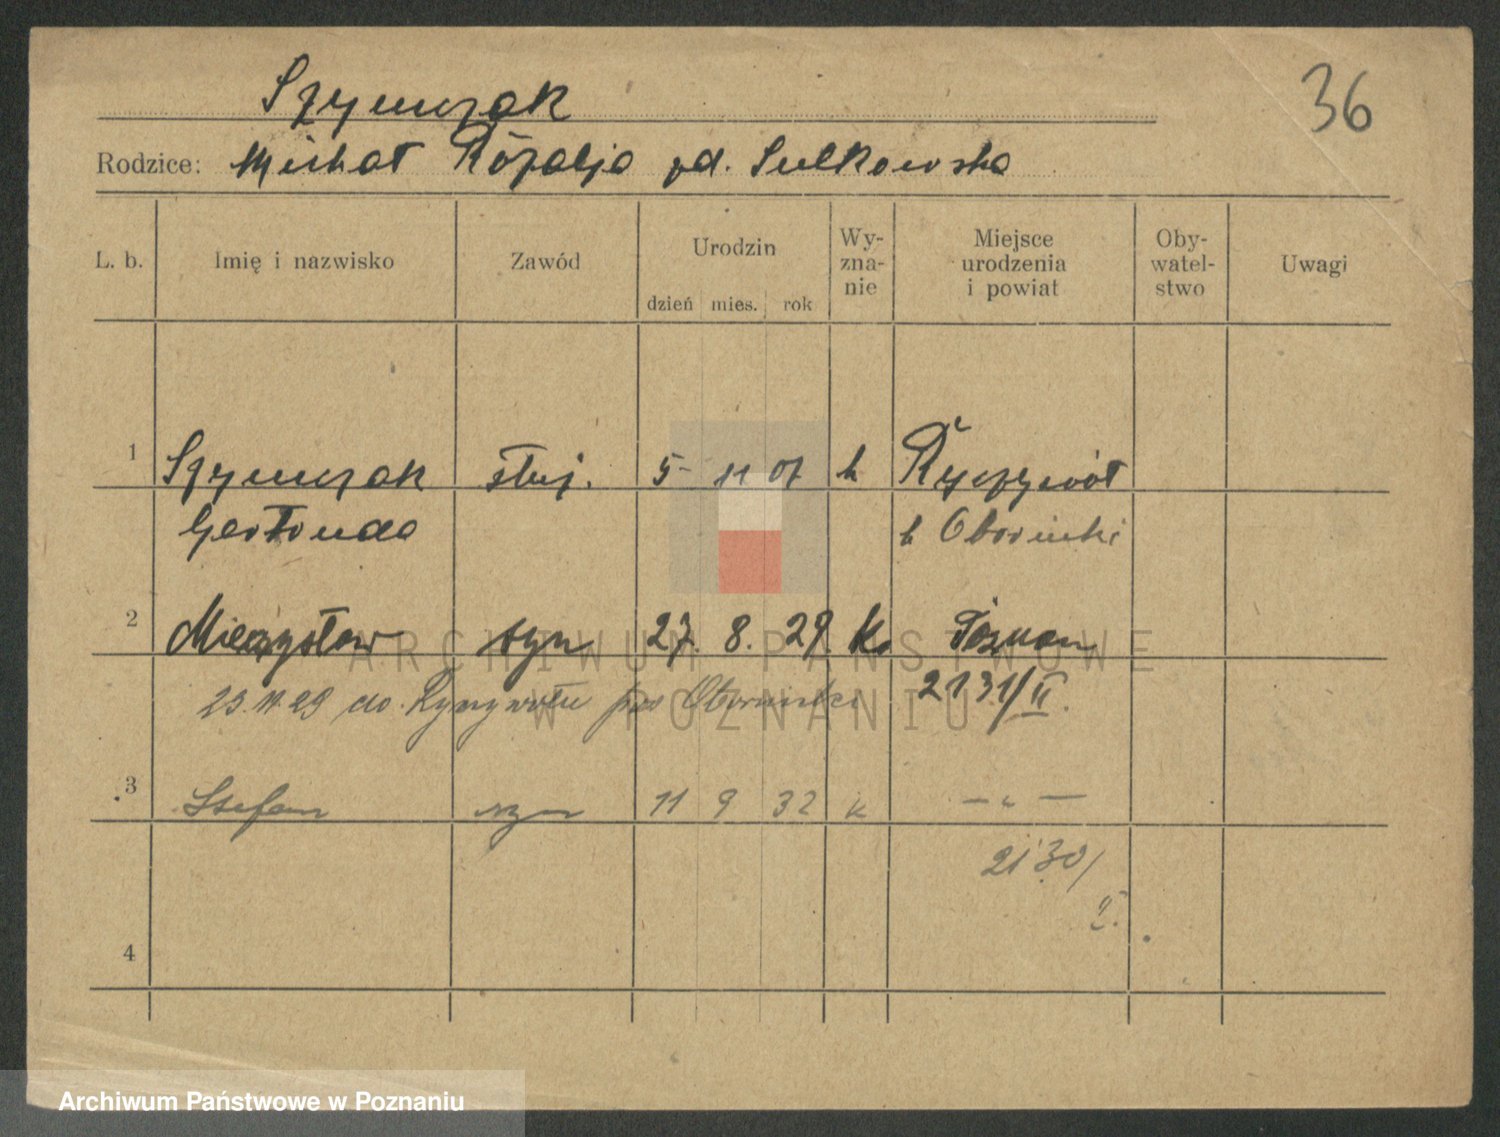 Szymczak
36
Rodzice: Michał Rozalja zd. Sulkowska
L. b. Imię i nazwisko Zawód Urodzin dzień mies. rok Wy-zna-nie Miejsce urodzenia i powiat Oby-watel-stwo Uwagi
1 Szymczak służ. 5 11 07 k Ryczywół
Gertruda k Oborniki
2 Mieczysław syn 27. 8. 29 k. Poznan
23.11.29 do Ryczywołu pow Obornicki 2131/II.
3 Stefan syn 11 9 32 k — " —
2130/
II.
4
ARCHIWUM PAŃSTWOWE
W POZNANIU
Archiwum Państwowe w Poznaniu